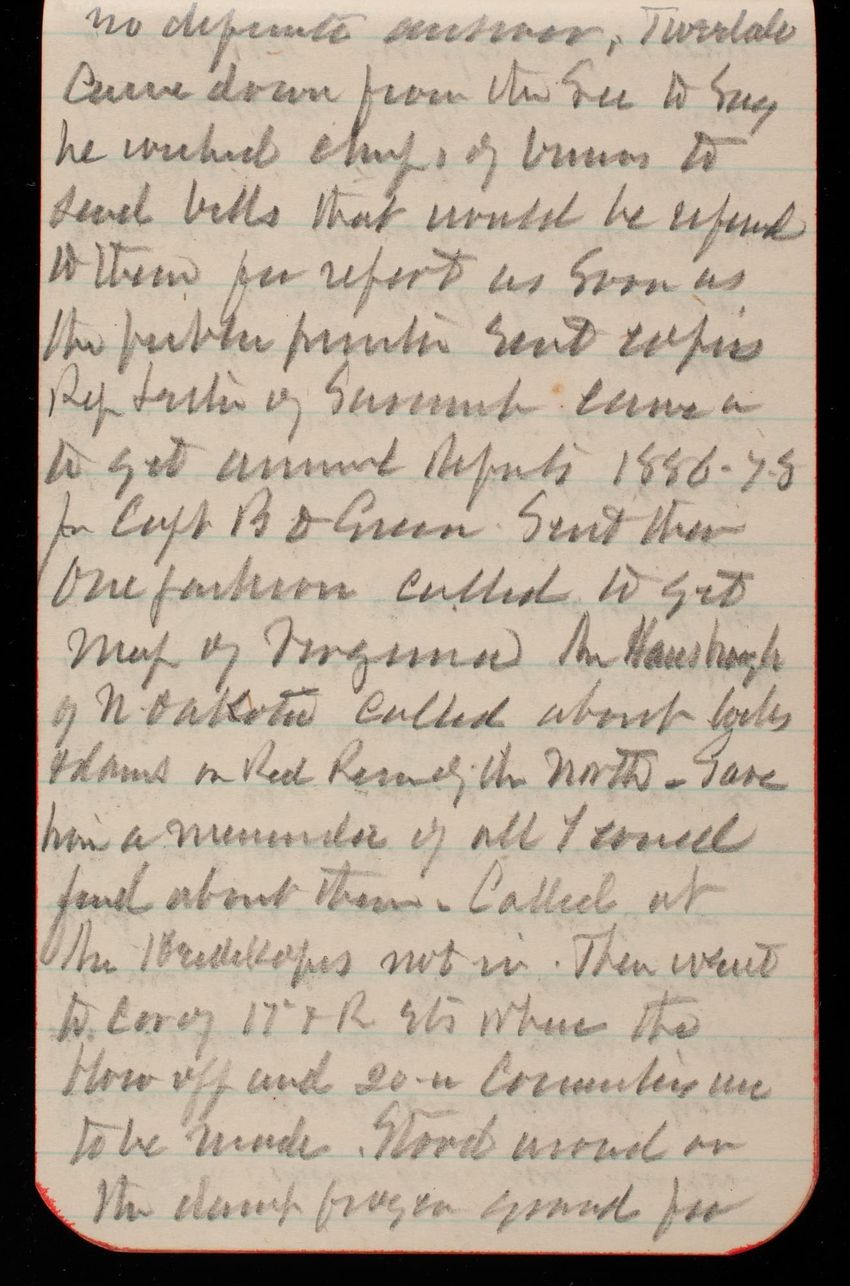 no definite answer, Tweedale
came down from the Sec to say
he wished chief of bureaus to
send bills that would be referred
to them for report as soon as
the public printer sent copies
Rep Lester of Savannah came in
to get annual Reports 1886-7-8
for Capt B D Green Sent them
One Jackson called to get
map of Virginia Mr Hansbrough
of N Dakota called about locks
& dams on Red River of the North - Gave
him a memorandum of all I could
find about them. Called at
Mr not in. Then went
to Cor of 17 & R Sts where the
blow off and 20-in Connection are
to be made. Stood around on
the damp frozen ground for